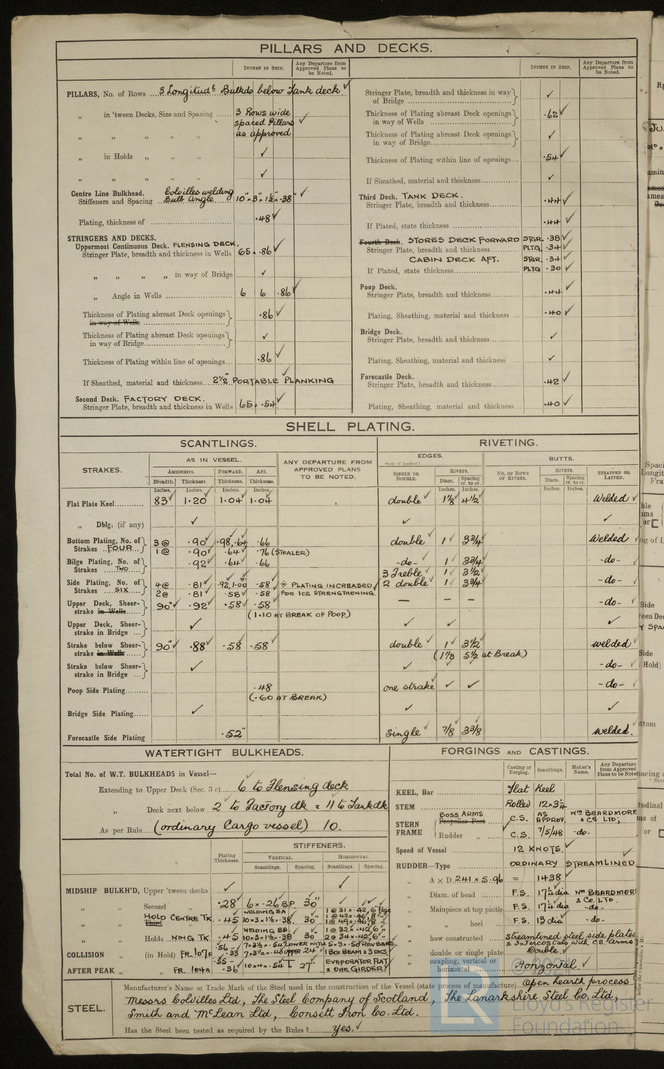 PILLARS AND DECKS.
INCHES IN SHIP. Any Departure from Approved Plans to be Noted.
PILLARS, No. of Rows 3 Longitudl Bulkds below Tank deck ✓
„ in 'tween Decks, Size and Spacing 3 Rows wide spaced Pillars as approved ✓
„ „ „ „
„ in Holds „ „ ✓
„ „ „ „ ✓
Centre Line Bulkhead. Colvilles welding
Stiffeners and Spacing Bulb Angle 10" × 3" × 1½" × .38 ✓
Plating, thickness of .48 ✓
STRINGERS AND DECKS.
Uppermost Continuous Deck. FLENSING DECK.
Stringer Plate, breadth and thickness in Wells 65 × .86 ✓
„ „ „ „ in way of Bridge ✓
„ Angle in Wells 6 6 .86 ✓
Thickness of Plating abreast Deck openings in way of Wells .86 ✓
Thickness of Plating abreast Deck openings in way of Bridge ✓
Thickness of Plating within line of openings .86 ✓
If Sheathed, material and thickness 2½" PORTABLE PLANKING
Second Deck. FACTORY DECK.
Stringer Plate, breadth and thickness in Wells 65 × .54 ✓
INCHES IN SHIP. Any Departure from Approved Plans to be Noted.
Stringer Plate, breadth and thickness in way of Bridge ✓
Thickness of Plating abreast Deck openings in way of Wells .62 ✓
Thickness of Plating abreast Deck openings in way of Bridge ✓
Thickness of Plating within line of openings .54 ✓
If Sheathed, material and thickness ✓
Third Deck. TANK DECK.
Stringer Plate, breadth and thickness .44 ✓
If Plated, state thickness .44 ✓
Fourth Deck. STORES DECK FORWARD STGR. .38 ✓
Stringer Plate, breadth and thickness PLTG .34 ✓
CABIN DECK AFT. STGR. .34 ✓
If Plated, state thickness PLTG .30 ✓
Poop Deck.
Stringer Plate, breadth and thickness .44 ✓
Plating, Sheathing, material and thickness .40 ✓
Bridge Deck.
Stringer Plate, breadth and thickness ✓
Plating, Sheathing, material and thickness ✓
Forecastle Deck.
Stringer Plate, breadth and thickness .42 ✓
Plating, Sheathing, material and thickness .40 ✓
SHELL PLATING.
SCANTLINGS. RIVETING.
STRAKES. AS IN VESSEL. ANY DEPARTURE FROM APPROVED PLANS TO BE NOTED. EDGES. BUTTS.
AMIDSHIPS. FORWARD. AFT. SINGLE OR DOUBLE. RIVETS. NO. OF ROWS OF RIVETS. RIVETS. STRAPPED OR LAPPED.
Breadth. Thickness. Thickness. Thickness. Diam. Spacing cr. to cr. Diam. Spacing cr. to cr.
Flat Plate Keel 83 1.20 1.04 1.04 double 1⅛ 4½ welded
„ Dblg. (if any) ✓
Bottom Plating, No. of Strakes FOUR 3 @ .90 .98, .64 .66 double 1 3¾ welded
1 @ .90 .64 .76 (STEALER)
Bilge Plating, No. of Strakes TWO .92 .64 .66 -do- 1 3¾ -do-
Side Plating, No. of Strakes SIX 4 @ .81 .92, 1.00 .58 * PLATING INCREASED 3 Treble 1 3½ -do-
2 @ .81 .58 .58 FOR ICE STRENGTHENING 2 double 1 3¾
Upper Deck, Sheerstrake in Wells 90" .92 .58 .58 — — — -do-
(1.10 AT BREAK OF POOP)
Upper Deck, Sheerstrake in Bridge ✓
Strake below Sheerstrake in Wells 90" .88 .58 .58 double 1 3½ welded
(1⅛ 5½ at Break)
Strake below Sheerstrake in Bridge ✓ -do-
Poop Side Plating .48 one strake ✓ ✓ -do-
(.60 AT BREAK)
Bridge Side Plating ✓
Forecastle Side Plating .52 single ⅞ 3⅜ welded.
WATERTIGHT BULKHEADS.
Total No. of W.T. BULKHEADS in Vessel—
Extending to Upper Deck (Sec. 3 c) 6 to Flensing deck
„ Deck next below 2 to Factory dk & 11 to Tank dk
As per Rule (ordinary Cargo vessel) 10.
STIFFENERS.
Plating Thickness. VERTICAL. HORIZONTAL.
Scantlings. Spacing. Scantlings. Spacing.
MIDSHIP BULKH'D, Upper 'tween decks ✓
„ Second „ .28 6 × .26 BP 30"
„ HOLD CENTRE TK. .45 10×3×1½×.38 30
„ Holds WING TK. .45 10×3×1½×.38 30
COLLISION „ (in Hold) FR. 107F
AFTER PEAK „ „ FR. 104A .36 27"
FORGINGS AND CASTINGS.
Casting or Forging. Scantlings. Maker's Name. Any Departure from Approved Plans to be Noted
KEEL, Bar Flat Keel
STEM Rolled 12 × 3¼
STERN FRAME Propeller Post BOSS ARMS C.S. AS APPROV. WM BEARDMORE & CO LTD;
Rudder „ C.S. 7/5/48 -do-
Speed of Vessel 12 KNOTS.
RUDDER—Type ORDINARY STREAMLINED
„ A × D 241 × 5.96 = 1438
„ Diam. of head F.S. 17½ dia WM BEARDMORE & CO. LTD.
„ Mainpiece at top pintle F.S. 17½ dia -do-
„ „ heel F.S. 13 dia -do-
„ how constructed Streamlined steel, side plates
„ double or single plate Double
„ coupling, vertical or horizontal Horizontal
STEEL.
Manufacturer's Name or Trade Mark of the Steel used in the construction of the Vessel (state process of manufacture). Open hearth process
Messrs Colvilles Ltd, The Steel Company of Scotland, The Lanarkshire Steel Co. Ltd,
Smith and McLean Ltd, Consett Iron Co. Ltd.
Has the Steel been tested as required by the Rules? yes. ✓
Lloyd's Register
Foundation